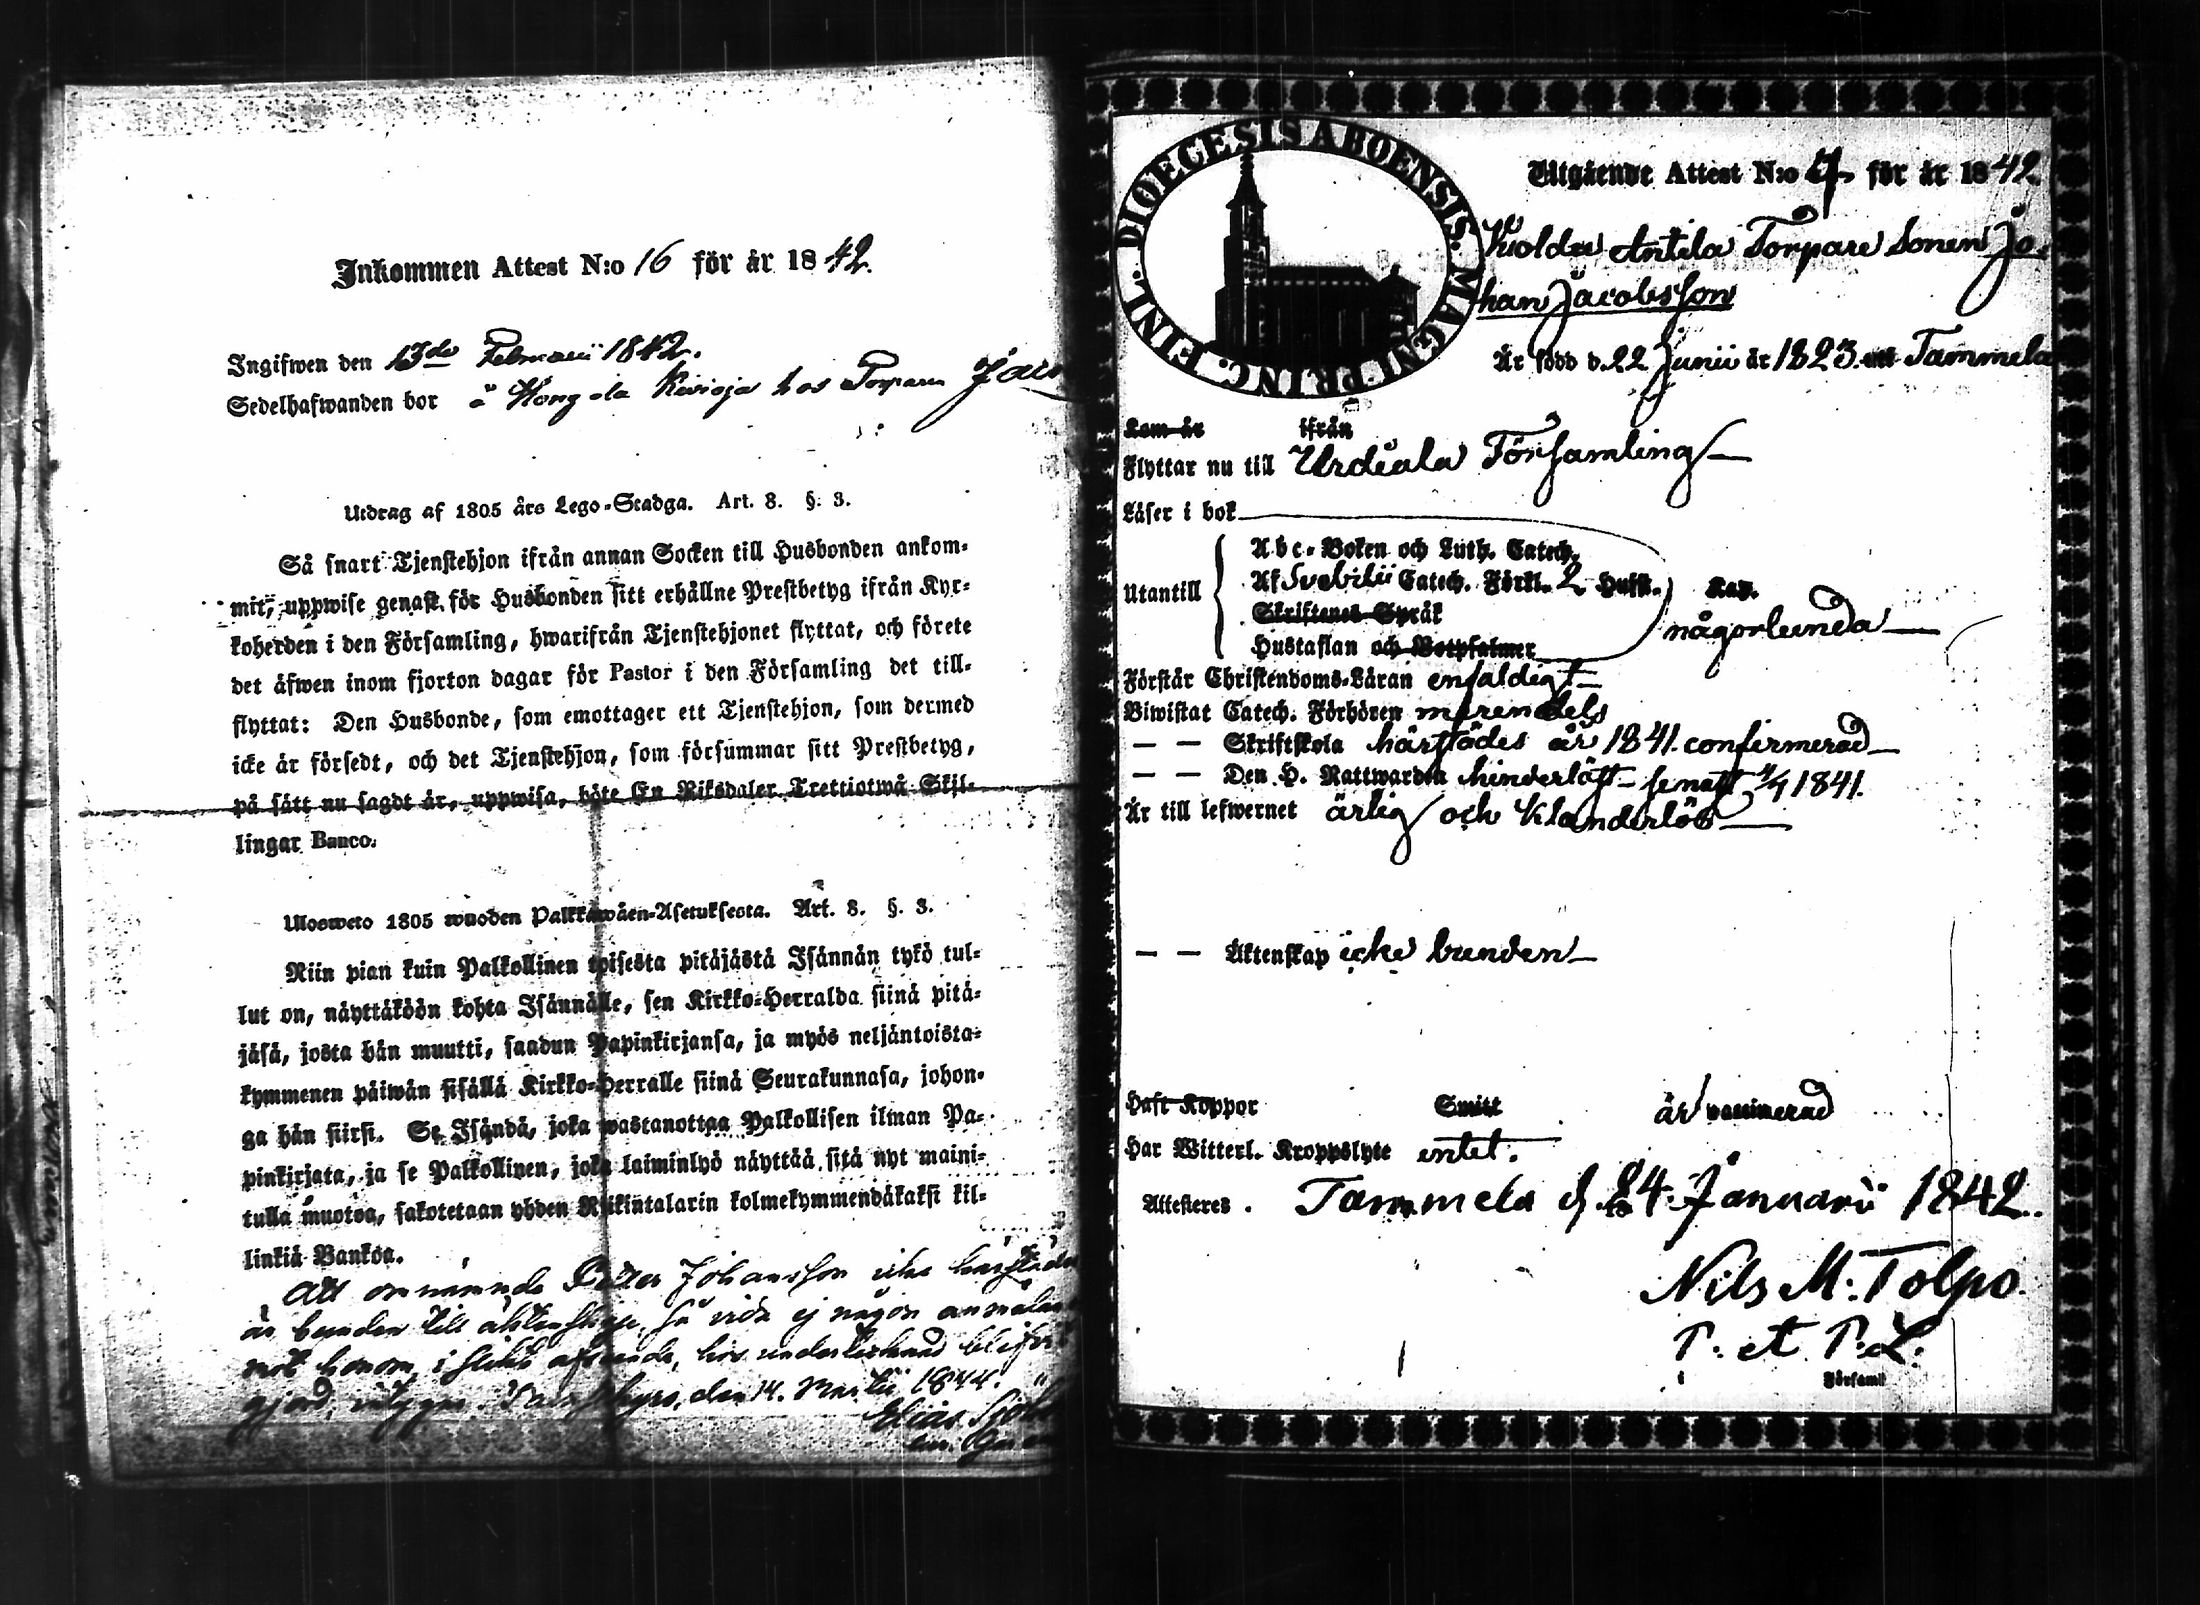 Inkommen Attest N:o 16 för år 1842.
Ingifwen den 13de Februarii 1842.
Sedelhafwanden bor å Hongola hos Torparen
Utdrag af 1805 års Lego-Stadga. Art. 8. §. 3.
Så snart Tjenstehjon ifrån annan Socken till Husbonden ankom-
mit, uppwise genast för Husbonden sitt erhållne Prestbetyg ifrån Kyr-
koherden i den Församling, hwarifrån Tjenstehjonet flyttat, och förete
det äfwen inom fjorton dagar för Pastor i den Församling det till-
flyttat: Den Husbonde, som emottager ett Tjenstehjon, som dermed
icke är försedt, och det Tjenstehjon, som försummar sitt Prestbetyg,
på sätt nu sagdt är, uppwisa, böte En Riksdaler Trettiotwå Skil-
lingar Banco.
Ulosweto 1805 wuoden Palkkawäen-Asetuksesta. Art. 8. §. 3.
Niin pian kuin Palkollinen toisesta pitäjästä Isännän tykö tul-
lut on, näyttäköön kohta Isännälle, sen Kirkko-Herralda siinä pitä-
jäsä, josta hän muutti, saadun Papinkirjansa, ja myös neljäntoista-
kymmenen päiwän sisällä Kirkko-Herralle siinä Seurakunnasa, johon-
ga hän siirsi. Se Isändä, joka wastanottaa Palkollisen ilman Pa-
pinkirjata, ja se Palkollinen, joka laiminlyö näyttää sitä nyt maini-
tulla muotoa, sakotetaan yhden Riikintalarin kolmekymmendäkaksi kil-
linkiä Bankoa.
Att omnämnde Petter Johansson icke härstädes
är bunden till äktenskap, så vida ej någon anmälan
mot honom, i sådant afseende, hos undertecknad blifvit
gjord, den 14. Martii 1844.
Elias
DIOECESIS ABOENSIS. MAGNI PRINC. FINL.
Utgående Attest N:o 7 för år 1842.
Antila Torpare Sonen Jo-
han Jacobsson
Är född d. 22 Junii år 1823 uti Tammela
Kom år ifrån
Flyttar nu till Urdiala Församling
Läser i bok
Utantill
Abc-Boken och Luth. Catech.
Af Svebilii Catech. Förkl. 2 Hufst. Kap.
Skriftenes Språk
någorlunda
Hustaflan och Botpsalmer
Förstår Christendoms-Läran enfaldigt
Biwistat Catech. Förhören merendels
— — Skriftskola härstädes år 1841. confirmerad
— — Den H. Nattwarden senast 1841.
Är till lefwernet ärlig och klanderlös
— — Äktenskap icke bunden
Haft Koppor Smitt är vaccinerad
Har Witterl. Kroppslyte intet.
Attesteres. Tammela d. 24 Januarii 1842.
Nils M. Tolpo.
P. et P. L.
Församl